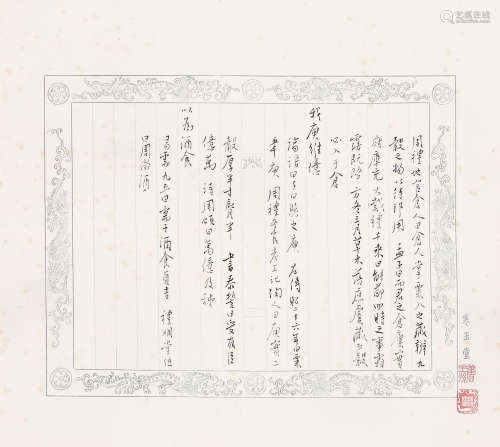 周禮地官倉人曰倉人掌粟入之藏辨九
穀之物以待邦用 孟子曰而君之倉廩實
府庫充大戴禮千乘曰能節四時之事霜
露既降方冬三月草木落庶虞藏五穀
必入于倉
我庾維億
論語曰與之庾 左傳昭二十六年曰粟
五千庾 周禮冬官考工記陶人曰庾實二
觳厚半寸脣寸 書泰誓曰受有臣
億萬 詩周頌曰萬億及秭
以為酒食
易需九五曰需于酒食貞吉 禮
曰周旅酒